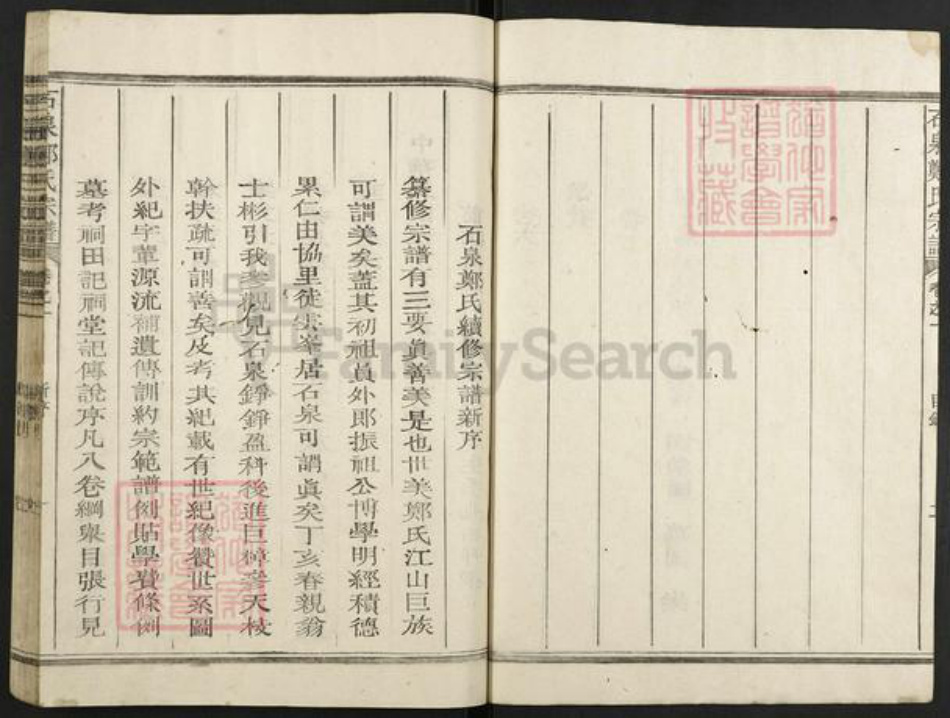 石泉鄭氏宗譜
卷之一
目錄
二
石泉鄭氏續修宗譜新序
纂修宗譜有三要眞善美是也世美鄭氏江山巨族
可謂美矣蓋其初祖員外郎振祖公博學明經積德
累仁由協里徒尖峯居石泉可謂眞矣丁亥春親翁
士彬引我參觀見石泉錚錚盈科後進巨樟參天枝
幹扶疏可謂善矣及考其紀載有世紀像贊世系圖
外紀字輩源流補遺傳訓約宗範譜例貼學費條例
墓考祠田記祠堂記傳說序凡八卷綱舉目張行見
石泉鄭氏宗譜
卷之一
新序
FamilySearch